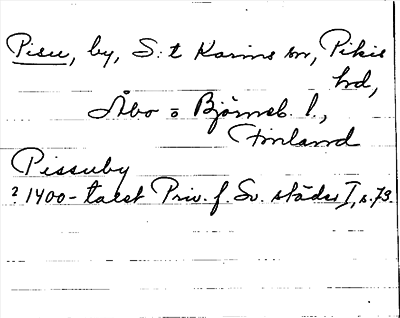 Pisu, by, S:t Karins sn, Pikis
hd,
Åbo o Björneb. l.,
Finland
Pissuby
? 1400-talet Priv. f. Sv. städer I, s. 73.